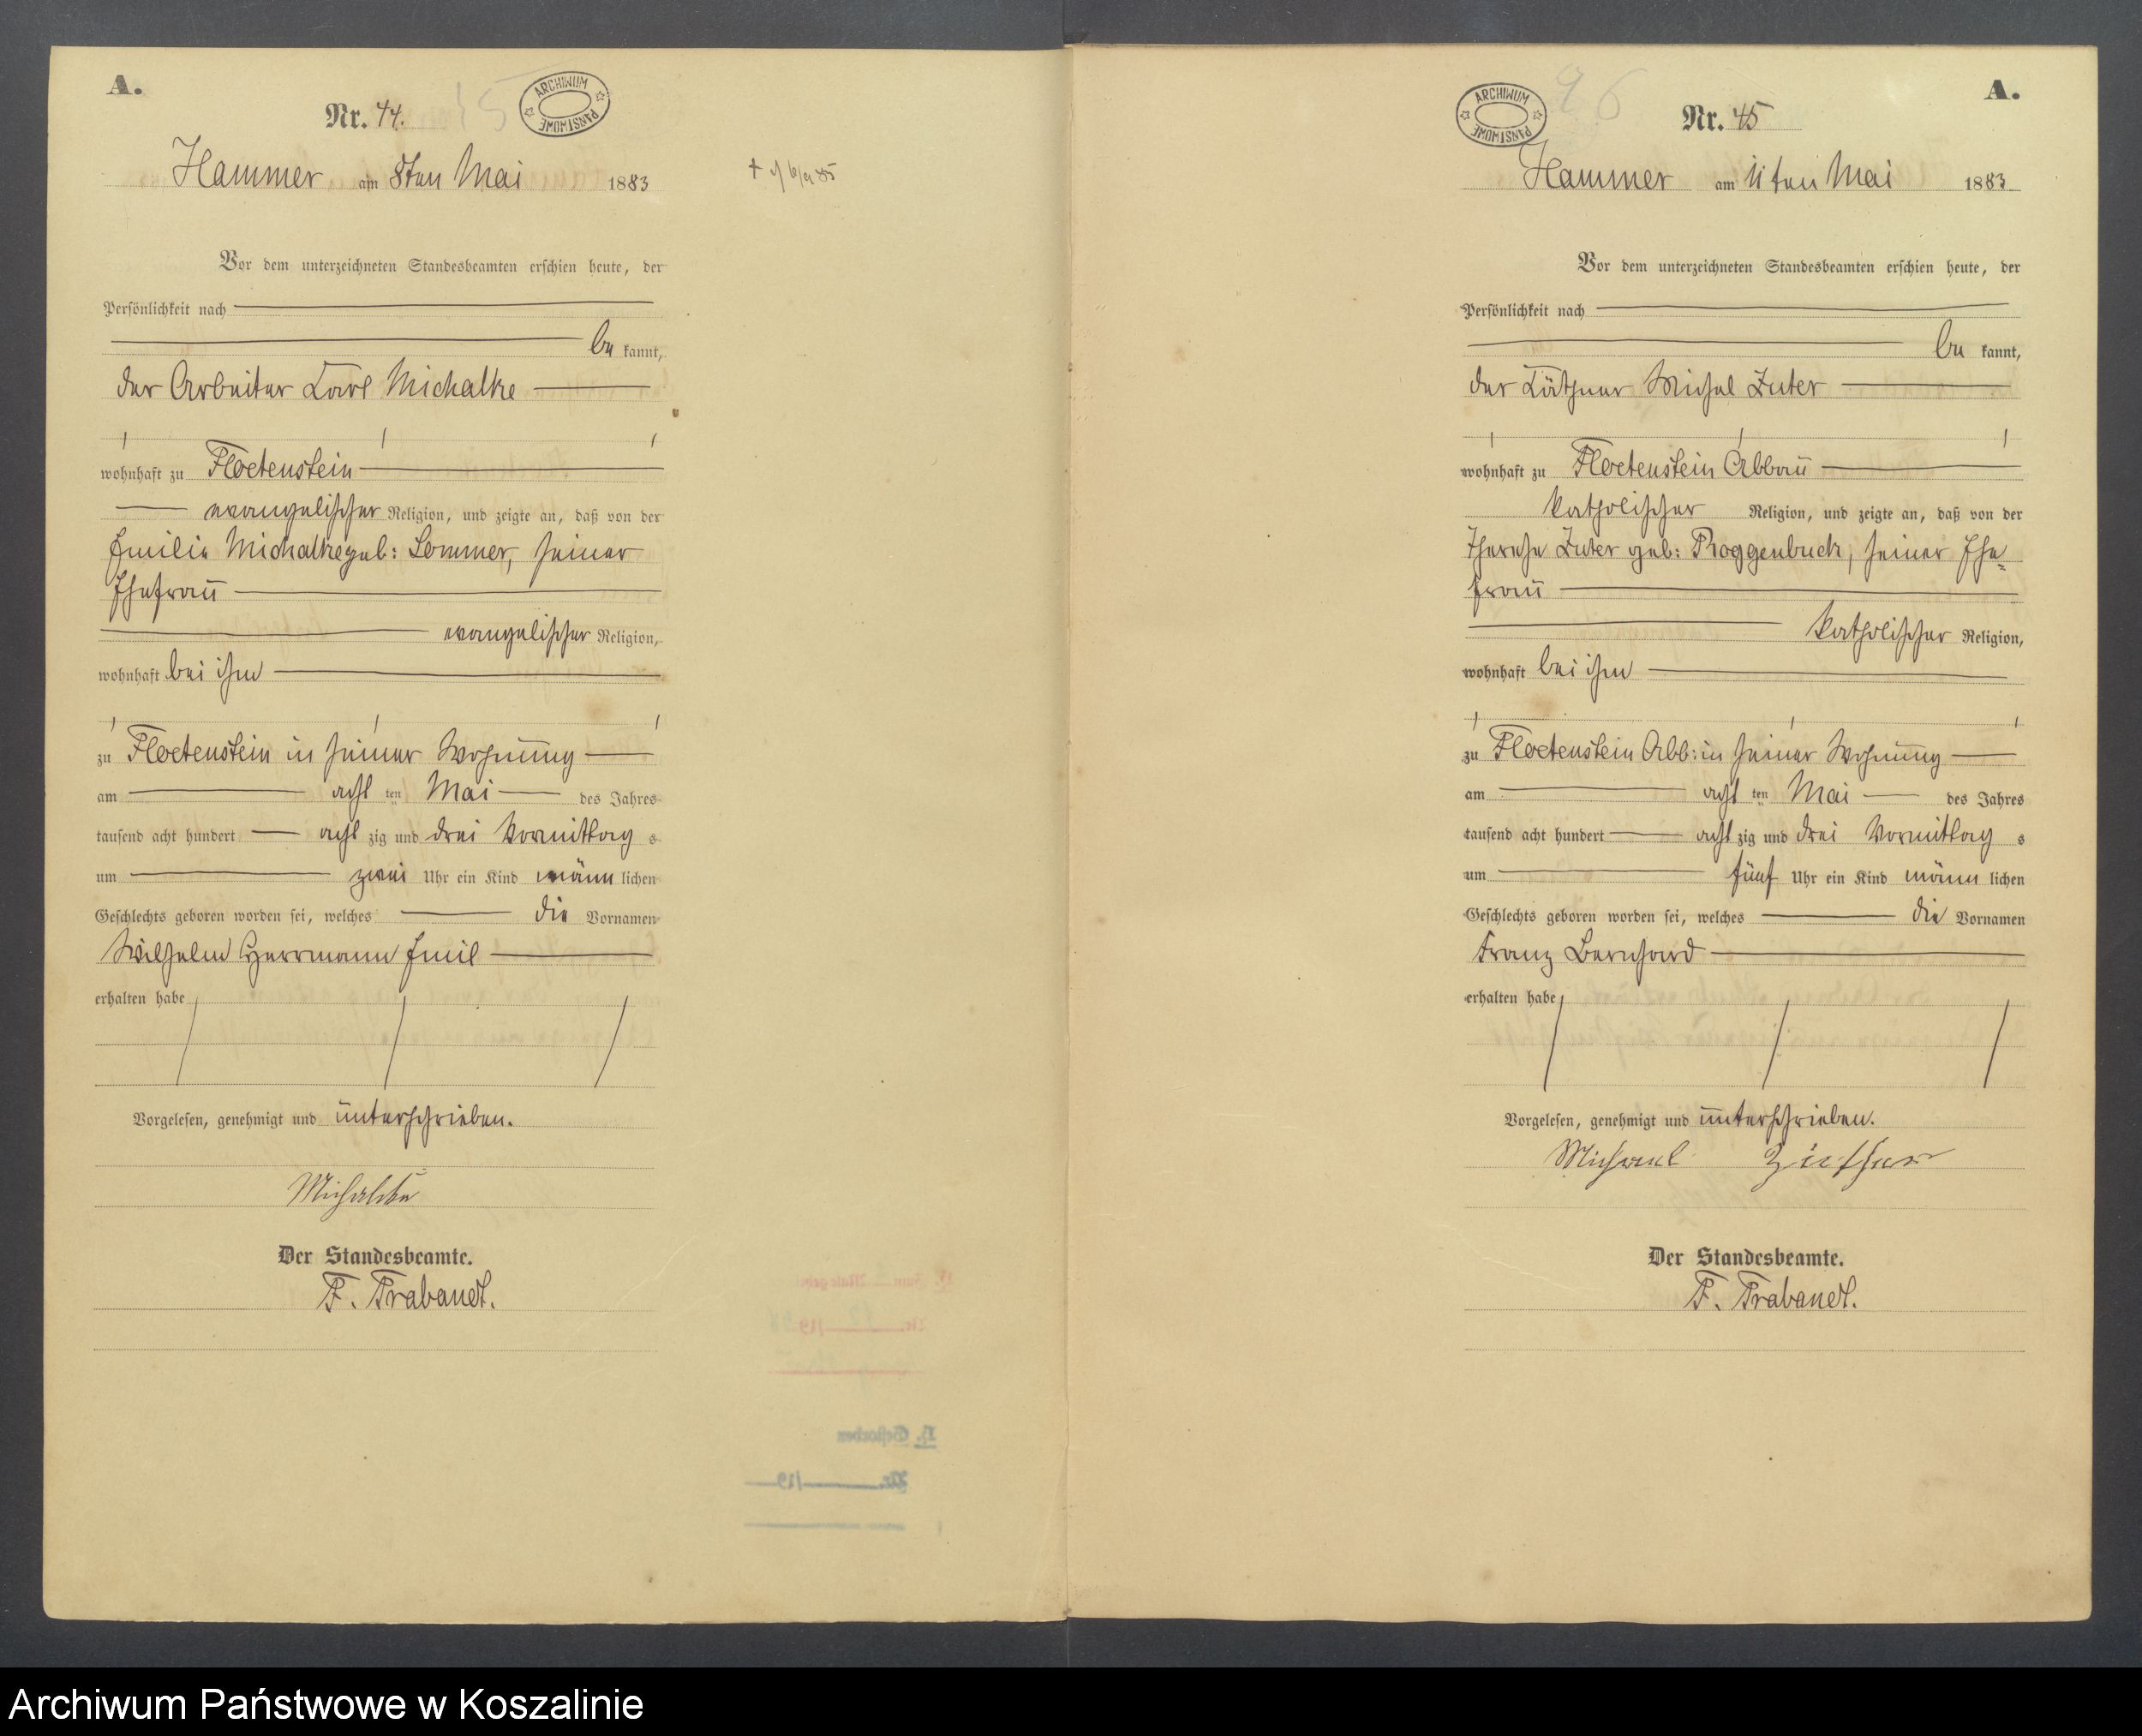 A.
Nr. 44.
ARCHIWUM PAŃSTWOWE
Hammer am 8ten Mai 1883
Vor dem unterzeichneten Standesbeamten erschien heute, der
Persönlichkeit nach
be kannt,
der Arbeiter Carl Michalke
wohnhaft zu Floetenstein
evangelischer Religion, und zeigte an, daß von der
Emilie Michalke geb: Sommer, seiner
Ehefrau
evangelischer Religion,
wohnhaft bei ihm
zu Floetenstein in seiner Wohnung
am acht ten Mai des Jahres
tausend acht hundert acht zig und drei Vormittag s
um zwei Uhr ein Kind männ lichen
Geschlechts geboren worden sei, welches die Vornamen
Wilhelm Herrmann Emil
erhalten habe
Vorgelesen, genehmigt und unterschrieben.
Michalke
Der Standesbeamte.
F. Trabandt.
A.
Nr. 45
96
ARCHIWUM PAŃSTWOWE
Hammer am 11ten Mai 1883
Vor dem unterzeichneten Standesbeamten erschien heute, der
Persönlichkeit nach
be kannt,
der Käthner Michel Zuter
wohnhaft zu Floetenstein Abbau
katholischer Religion, und zeigte an, daß von der
Therese Zuter geb: Roggenbuck, seiner Ehe=
frau
katholischer Religion,
wohnhaft bei ihm
zu Floetenstein Abb: in seiner Wohnung
am acht ten Mai des Jahres
tausend acht hundert acht zig und drei Vormittag s
um fünf Uhr ein Kind männ lichen
Geschlechts geboren worden sei, welches die Vornamen
Franz Bernhard
erhalten habe
Vorgelesen, genehmigt und unterschrieben.
Michael Züther
Der Standesbeamte.
F. Trabandt.
Archiwum Państwowe w Koszalinie